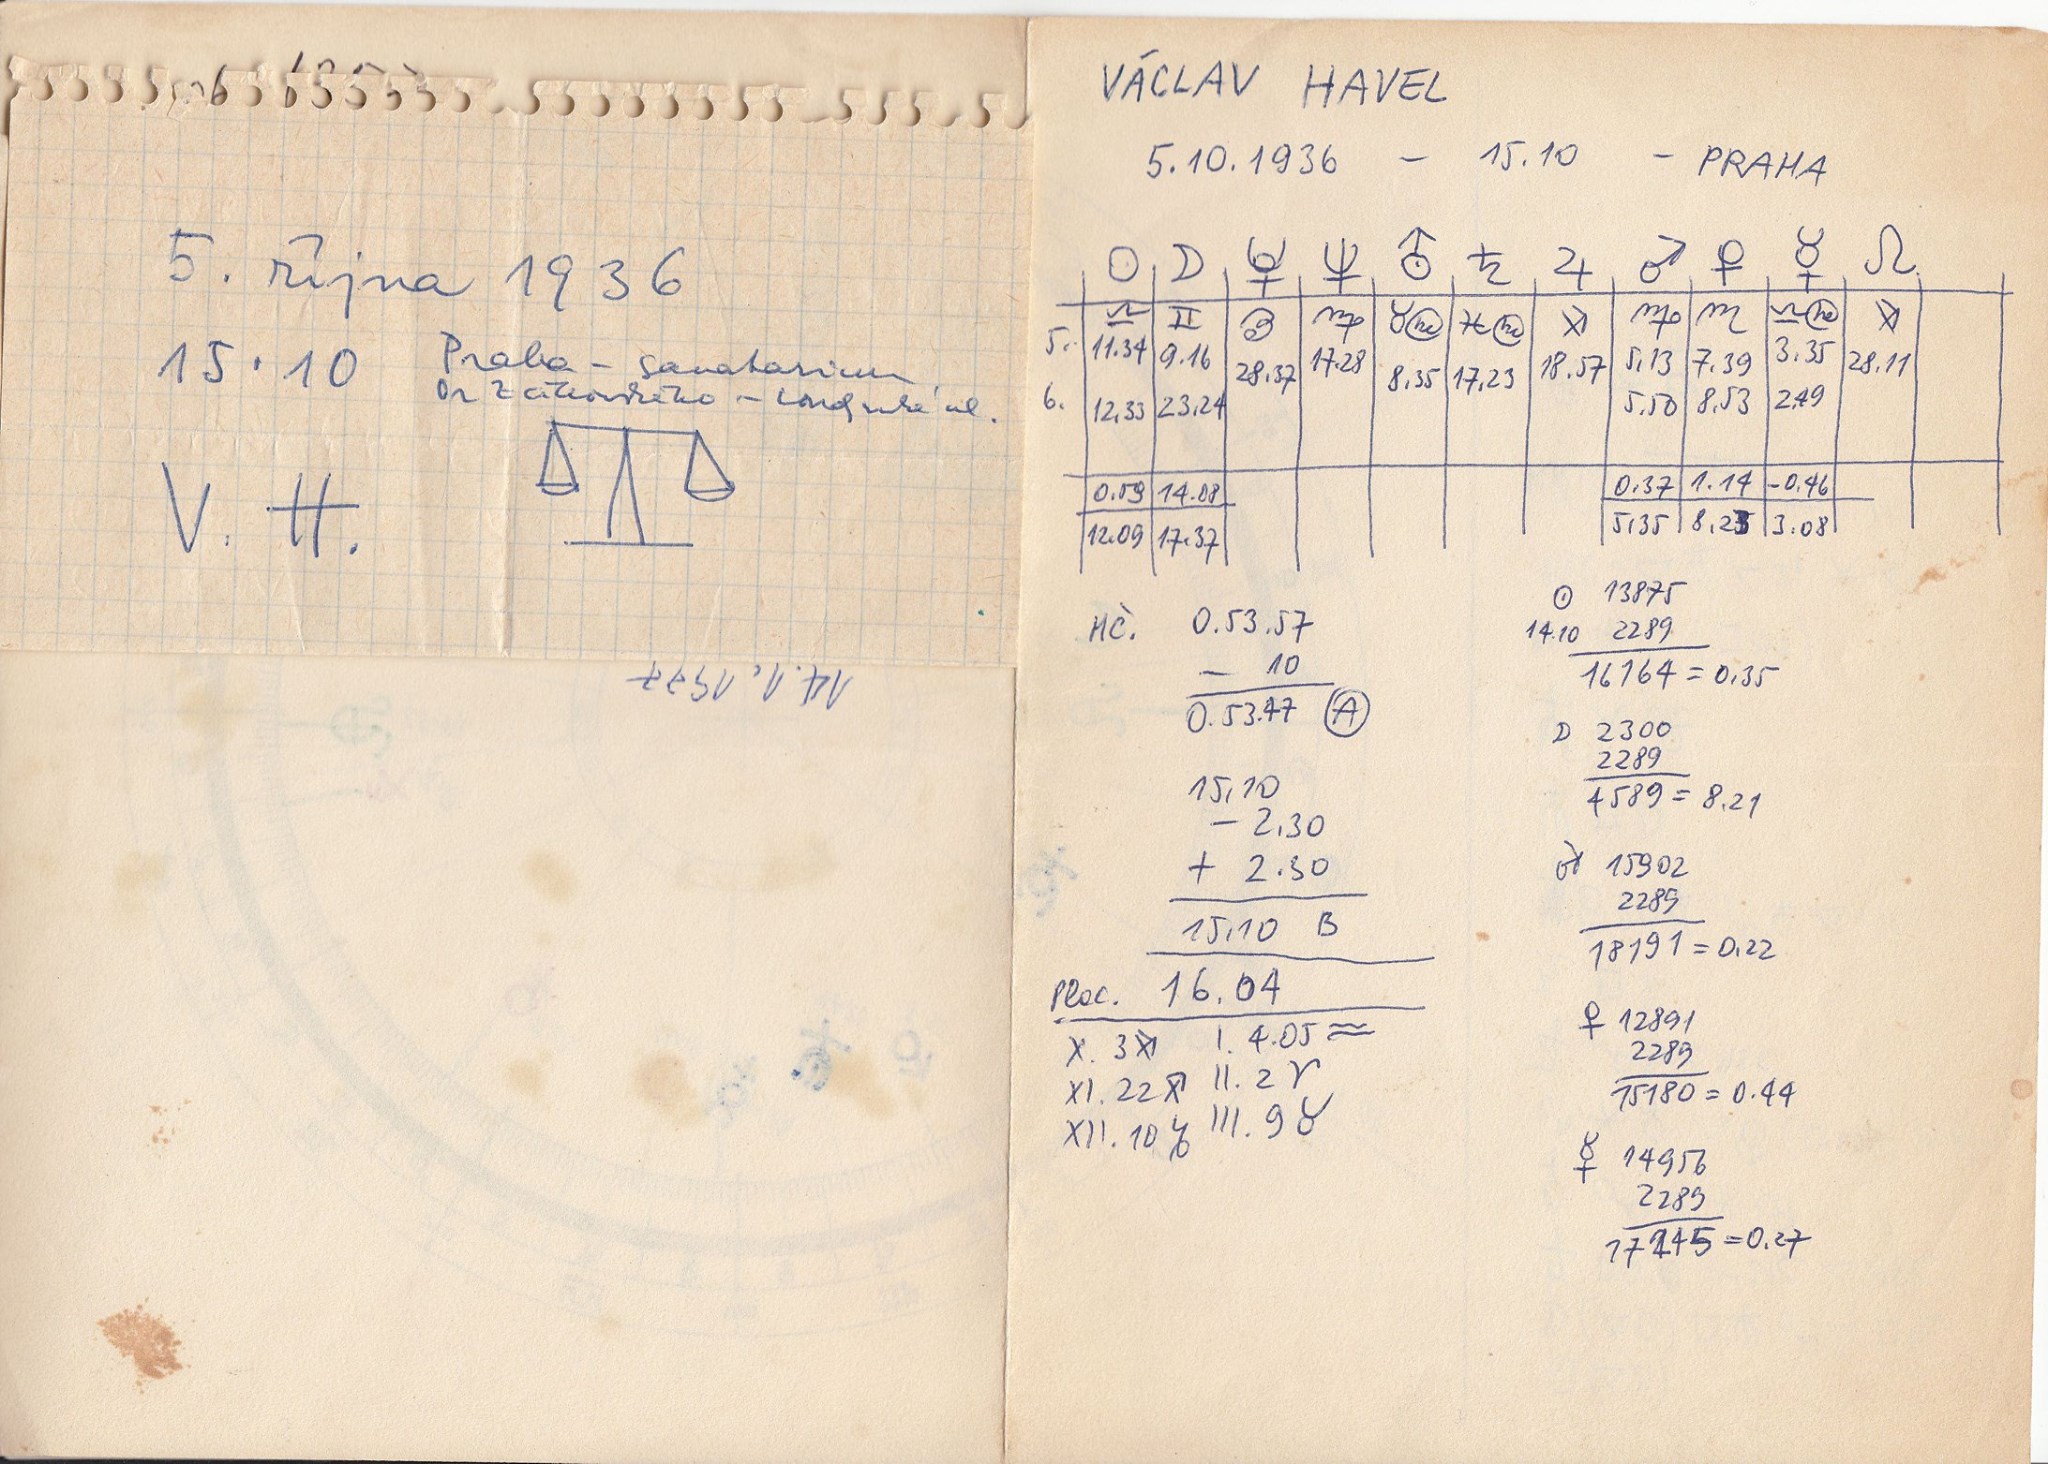 5. října 1936
15.10 Praha – sanatorium
V. H.
14.1.1977
VÁCLAV HAVEL
5.10.1936 – 15.10 – PRAHA
☉ ☽ ♇ ♆ ⛢ ♄ ♃ ♂ ♀ ☿ ☊
♎ ♊ ♋ ♍ ♉ ♓ ♐ ♍ ♏ ♎ ♐
5. 11.34 9.16 28.37 17.28 8.35 17.23 18.57 5.13 7.39 3.35 28.11
6. 12.33 23.24 5.50 8.53 2.49
0.59 14.08 0.37 1.14 -0.46
12.09 17.37 5.35 8.23 3.08
HČ. 0.53.57
– 10
0.53.47 A
15.10
– 2.30
+ 2.30
15.10 B
Plac. 16.04
X. 3 ♐ I. 4.05 ♒
XI. 22 ♐ II. 2 ♈
XII. 10 ♑ III. 9 ♉
☉ 13875
14.10 2289
16164 = 0.35
☽ 2300
2289
4589 = 8.21
♂ 15902
2289
18191 = 0.22
♀ 12891
2289
15180 = 0.44
☿ 14956
2289
17245 = 0.27